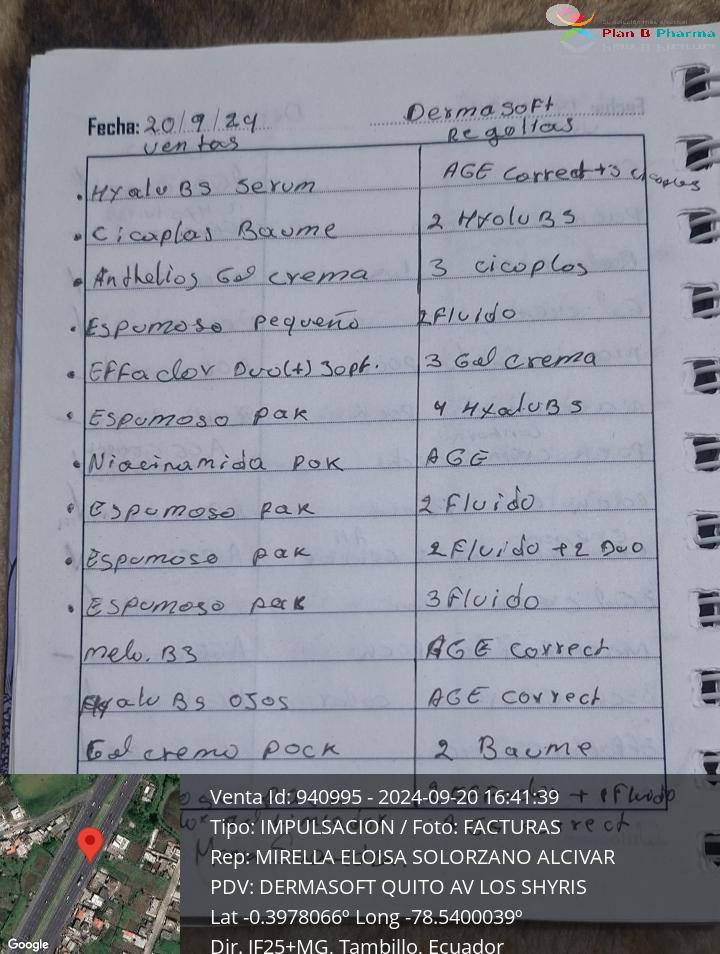 Plan B Pharma
Fecha: 20/9/24 DermaSoft
ventas Regalias
• Hyalu B5 serum AGE correct+3 cicaplas
• Cicaplas Baume 2 Hyalu B5
• Anthelios Gel crema 3 cicaplas
• Espumoso pequeño 2 Fluido
• Effaclar Duo(+) 30pt. 3 Gel crema
• Espumoso pak 4 Hyalu B5
• Niacinamida pak AGE
• Espumoso pak 2 Fluido
• Espumoso pak 2 Fluido +2 Duo
• Espumoso pak 3 Fluido
mela. B3 AGE correct
Hyalu B5 ojos AGE correct
Gel crema pack 2 Baume
+ 1 Fluido
Venta Id: 940995 - 2024-09-20 16:41:39
Tipo: IMPULSACION / Foto: FACTURAS
Rep: MIRELLA ELOISA SOLORZANO ALCIVAR
PDV: DERMASOFT QUITO AV LOS SHYRIS
Lat -0.3978066º Long -78.5400039º
Dir. JF25+MG, Tambillo, Ecuador
Google